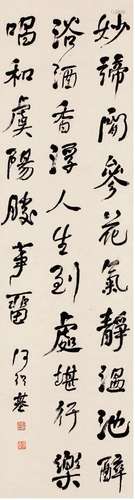 妙諦閒參花氣靜溫池醉
浴酒香浮人生到處堪行樂
唱和虞陽勝事畱
何紹基